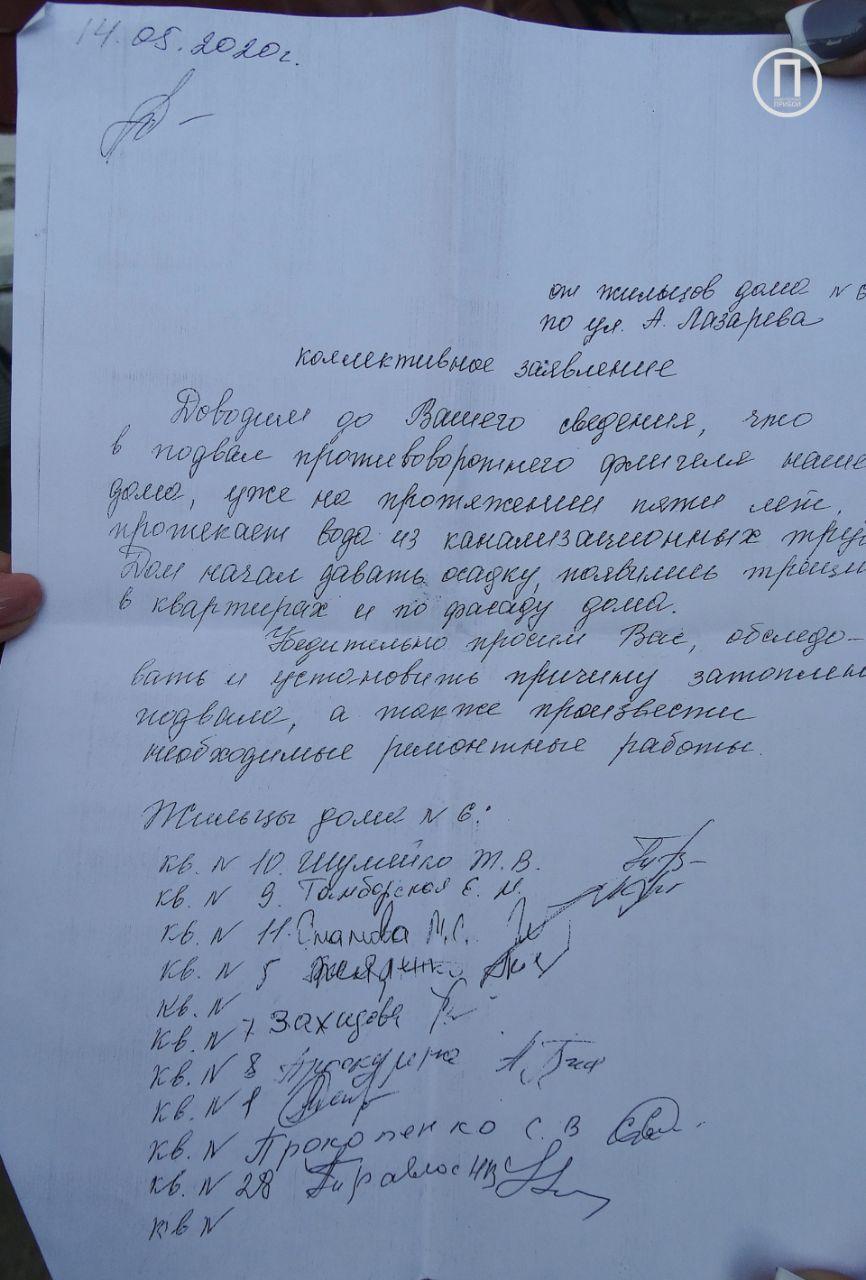 14.05.2020г.
П
ПРИБОЙ
от жильцов дома N 6
по ул. А. Лазарева
коллективное заявление
Доводим до Вашего сведения, что
в подвал противоворотнего флигеля наше
дома, уже на протяжении пяти лет,
протекает вода из канализационных тру
Дом начал давать осадку, появились трещи
в квартирах и по фасаду дома.
Убедительно просим Вас, обследо-
вать и установить причину затоплен
подвала, а также произвести
необходимые ремонтные работы.
Жильцы дома N 6:
кв. N 10. Шумейко Т.В.
кв. N 9. Тамборская Е.
кв. N 11. М.С.
кв. N 5
кв. N
кв. N 7 Захидова
кв. N 8
кв. N 1
кв. N Прокопенко С. В
кв. N 28
кв N